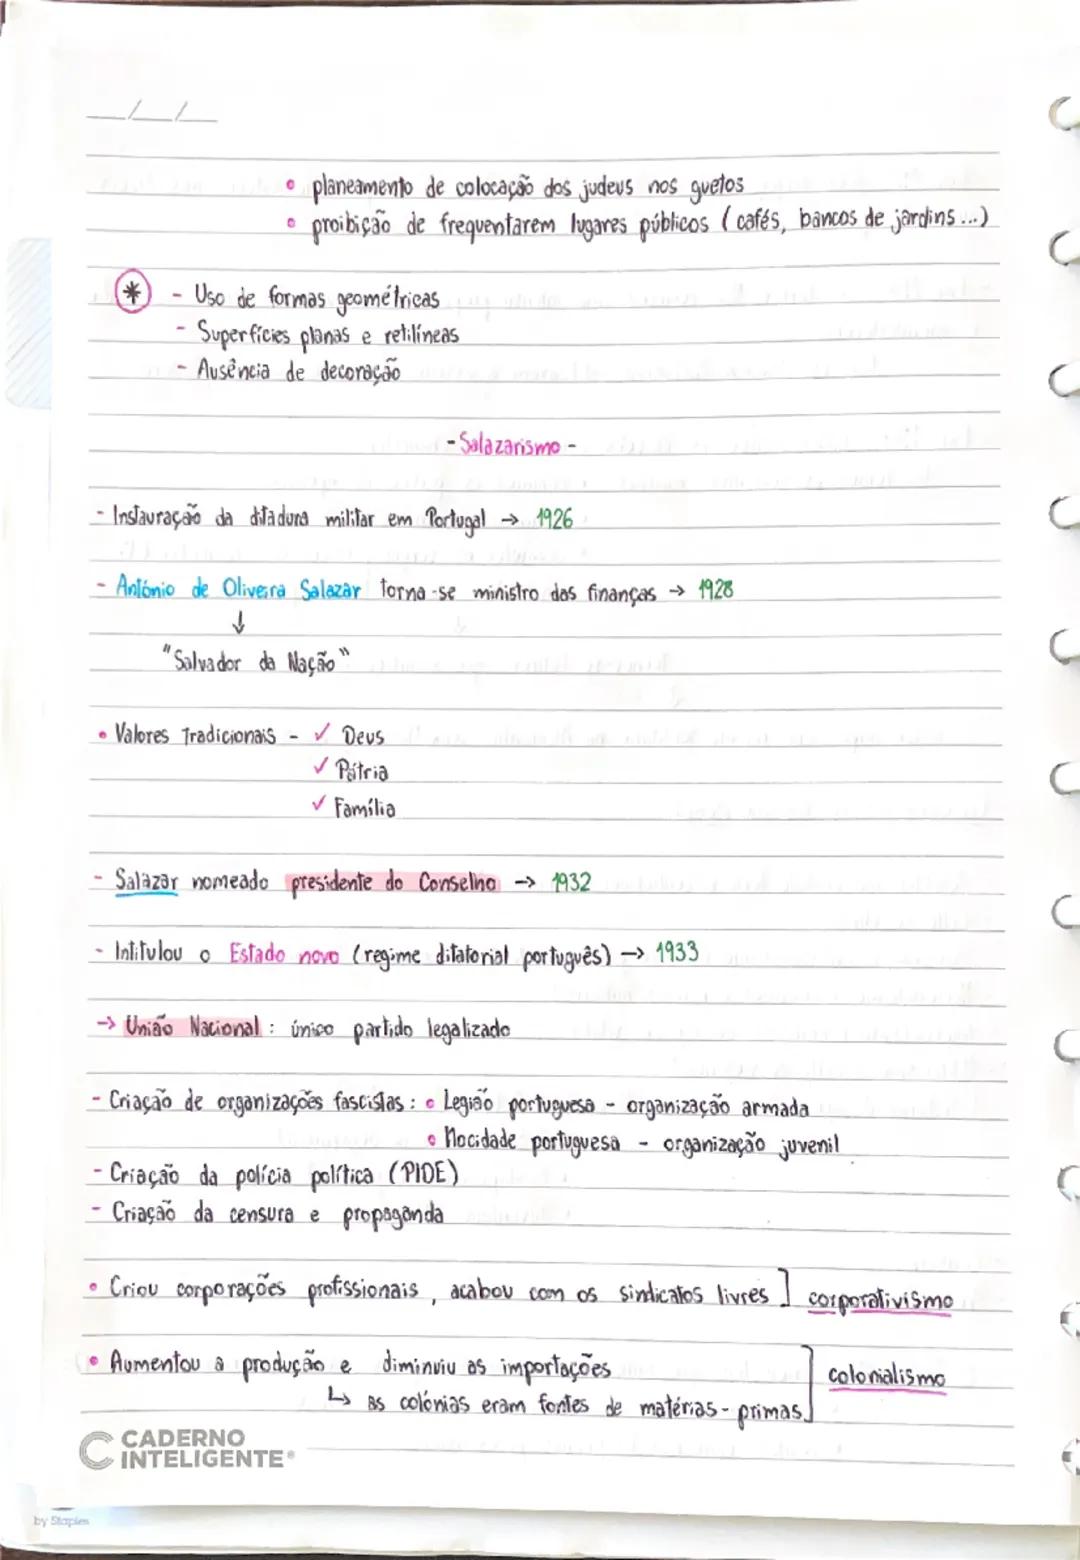 __/__/__
• planeamento de colocação dos judeus nos guetos
• proibição de frequentarem lugares públicos (cafés, bancos de jardins...)
* - Uso de formas geométricas
- Superfícies planas e retilíneas
- Ausência de decoração
- Salazarismo -
- Instauração da ditadura militar em Portugal → 1926
- António de Oliveira Salazar torna-se ministro das finanças → 1928
↓
"Salvador da Nação"
• Valores Tradicionais - ✓ Deus
✓ Pátria
✓ Família
- Salazar nomeado presidente do Conselho → 1932
- Intitulou o Estado novo (regime ditatorial português) → 1933
→ União Nacional : único partido legalizado
- Criação de organizações fascistas : • Legião portuguesa - organização armada
• Mocidade portuguesa - organização juvenil
- Criação da polícia política (PIDE)
- Criação da censura e propaganda
• Criou corporações profissionais, acabou com os sindicatos livres ] corporativismo
• Aumentou a produção e diminuiu as importações ] colonialismo
↳ as colónias eram fontes de matérias-primas
CADERNO
INTELIGENTE®
by Staples